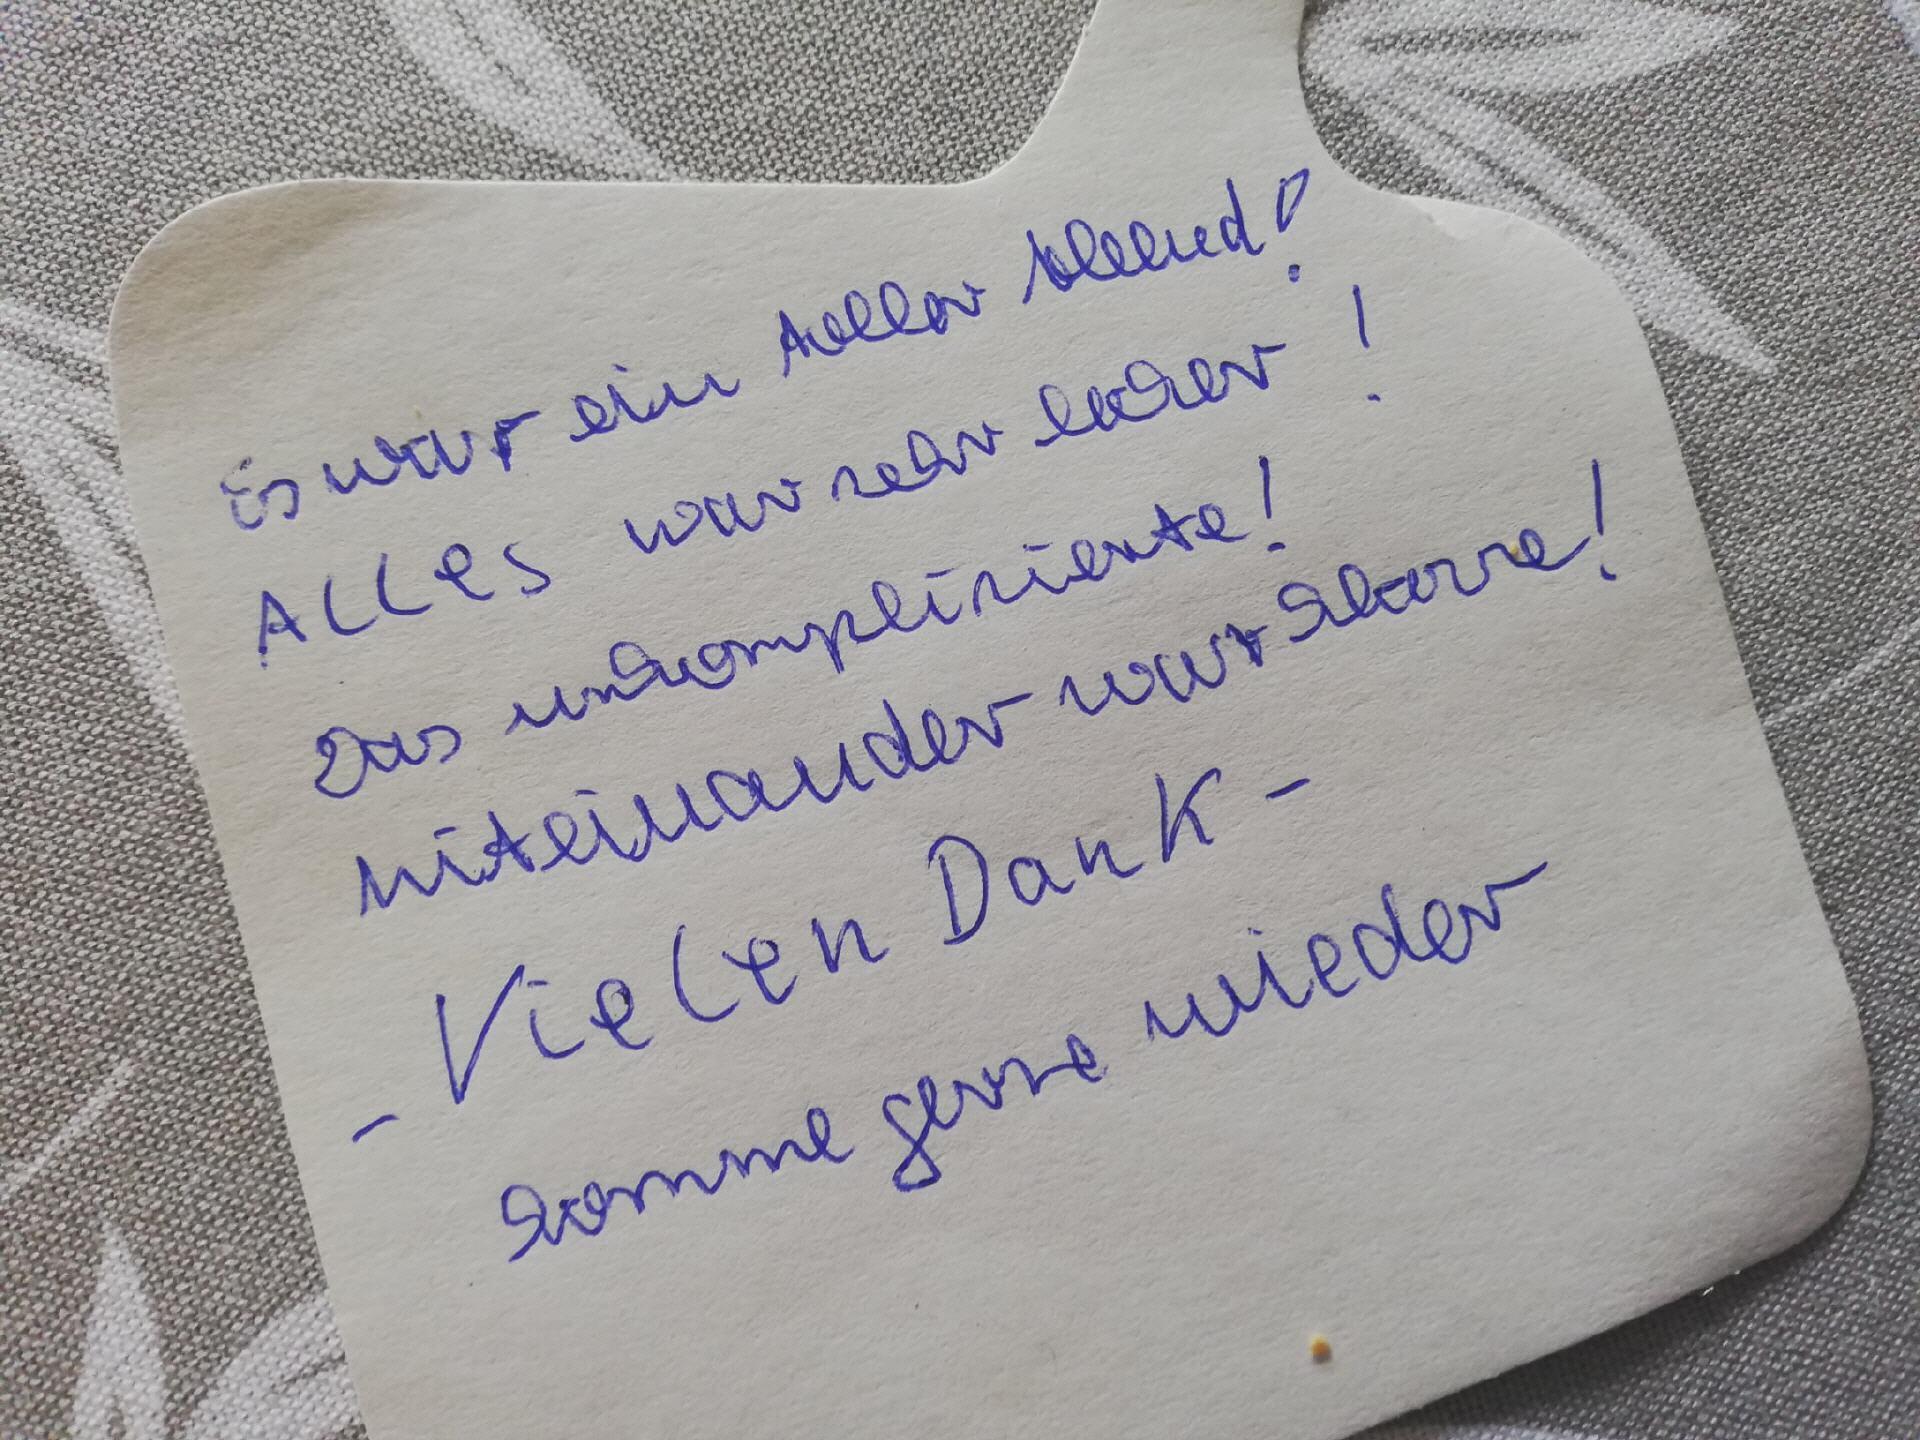 Es war ein toller Abend!
Alles war sehr lecker!
Das unkomplizierte!
Miteinander war klasse!
- Vielen Dank -
komme gerne wieder